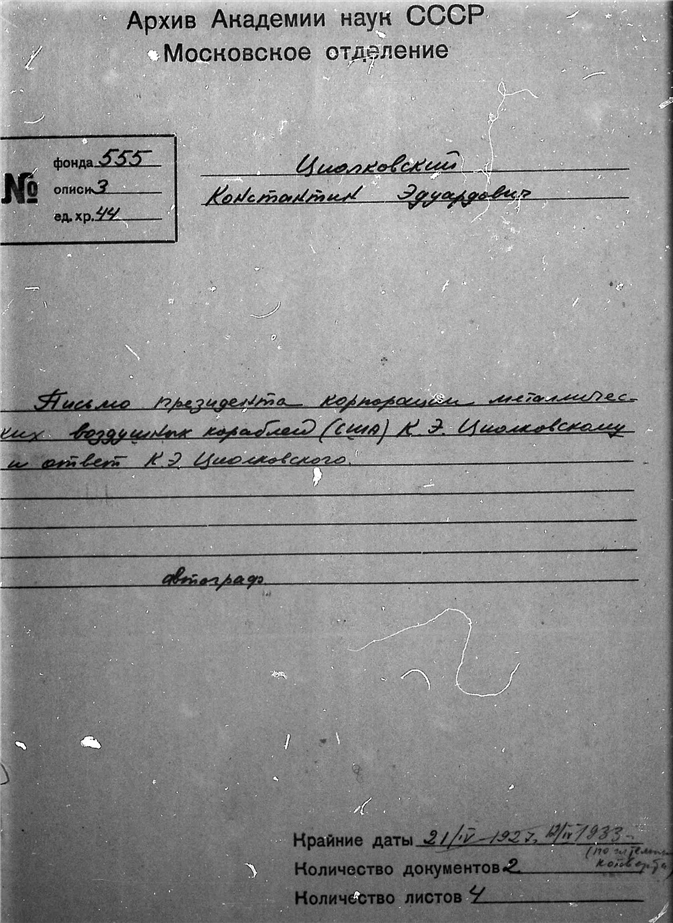 Архив Академии наук СССР
Московское отделение
№
фонда 555
описи 3
ед. хр. 44
Циолковский
Константин Эдуардович
Письмо президента корпорации металличес-
ких воздушных кораблей (США) К. Э. Циолковскому
и ответ К. Э. Циолковского.
автограф
Крайние даты 21/IV-1927, /IV 1933
Количество документов 2
конверта)
Количество листов 4